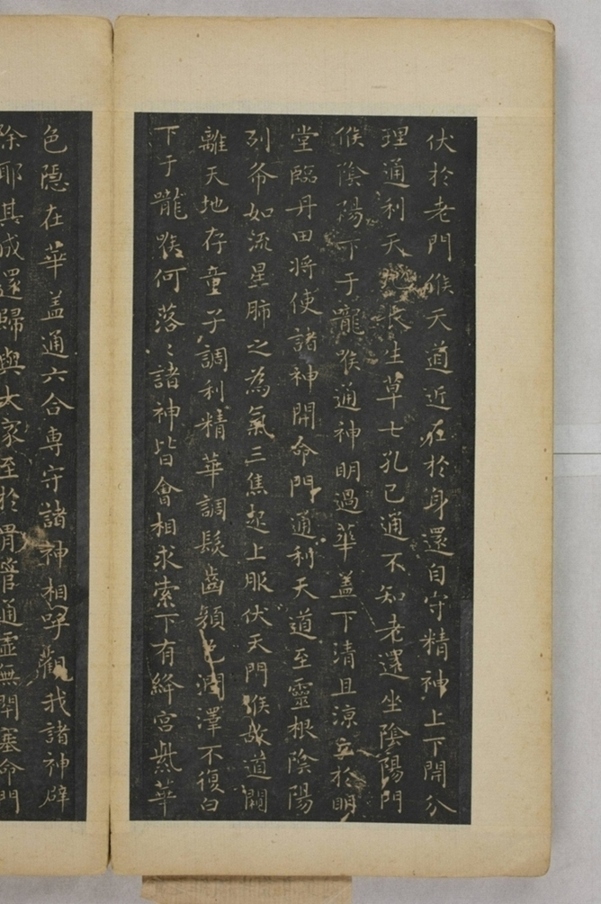 伏於老門候天道近在於身還自守精神上下開分
理通利天地長生草七孔已通不知老還坐陰陽門
候陰陽下于嚨喉通神明過華盖下清且涼立於明
堂臨丹田將使諸神開命門通利天道至靈根陰陽
列布如流星肺之為氣三焦起上服伏天門候故道闚
離天地存童子調利精華調髮齒顏色潤澤不復白
下于嚨喉何落〻諸神皆會相求索下有絳宮紫華
色隱在華盖通六合專守諸神相呼觀我諸神辟
除耶其成還歸與大家至於胃管通虛無閉塞命門